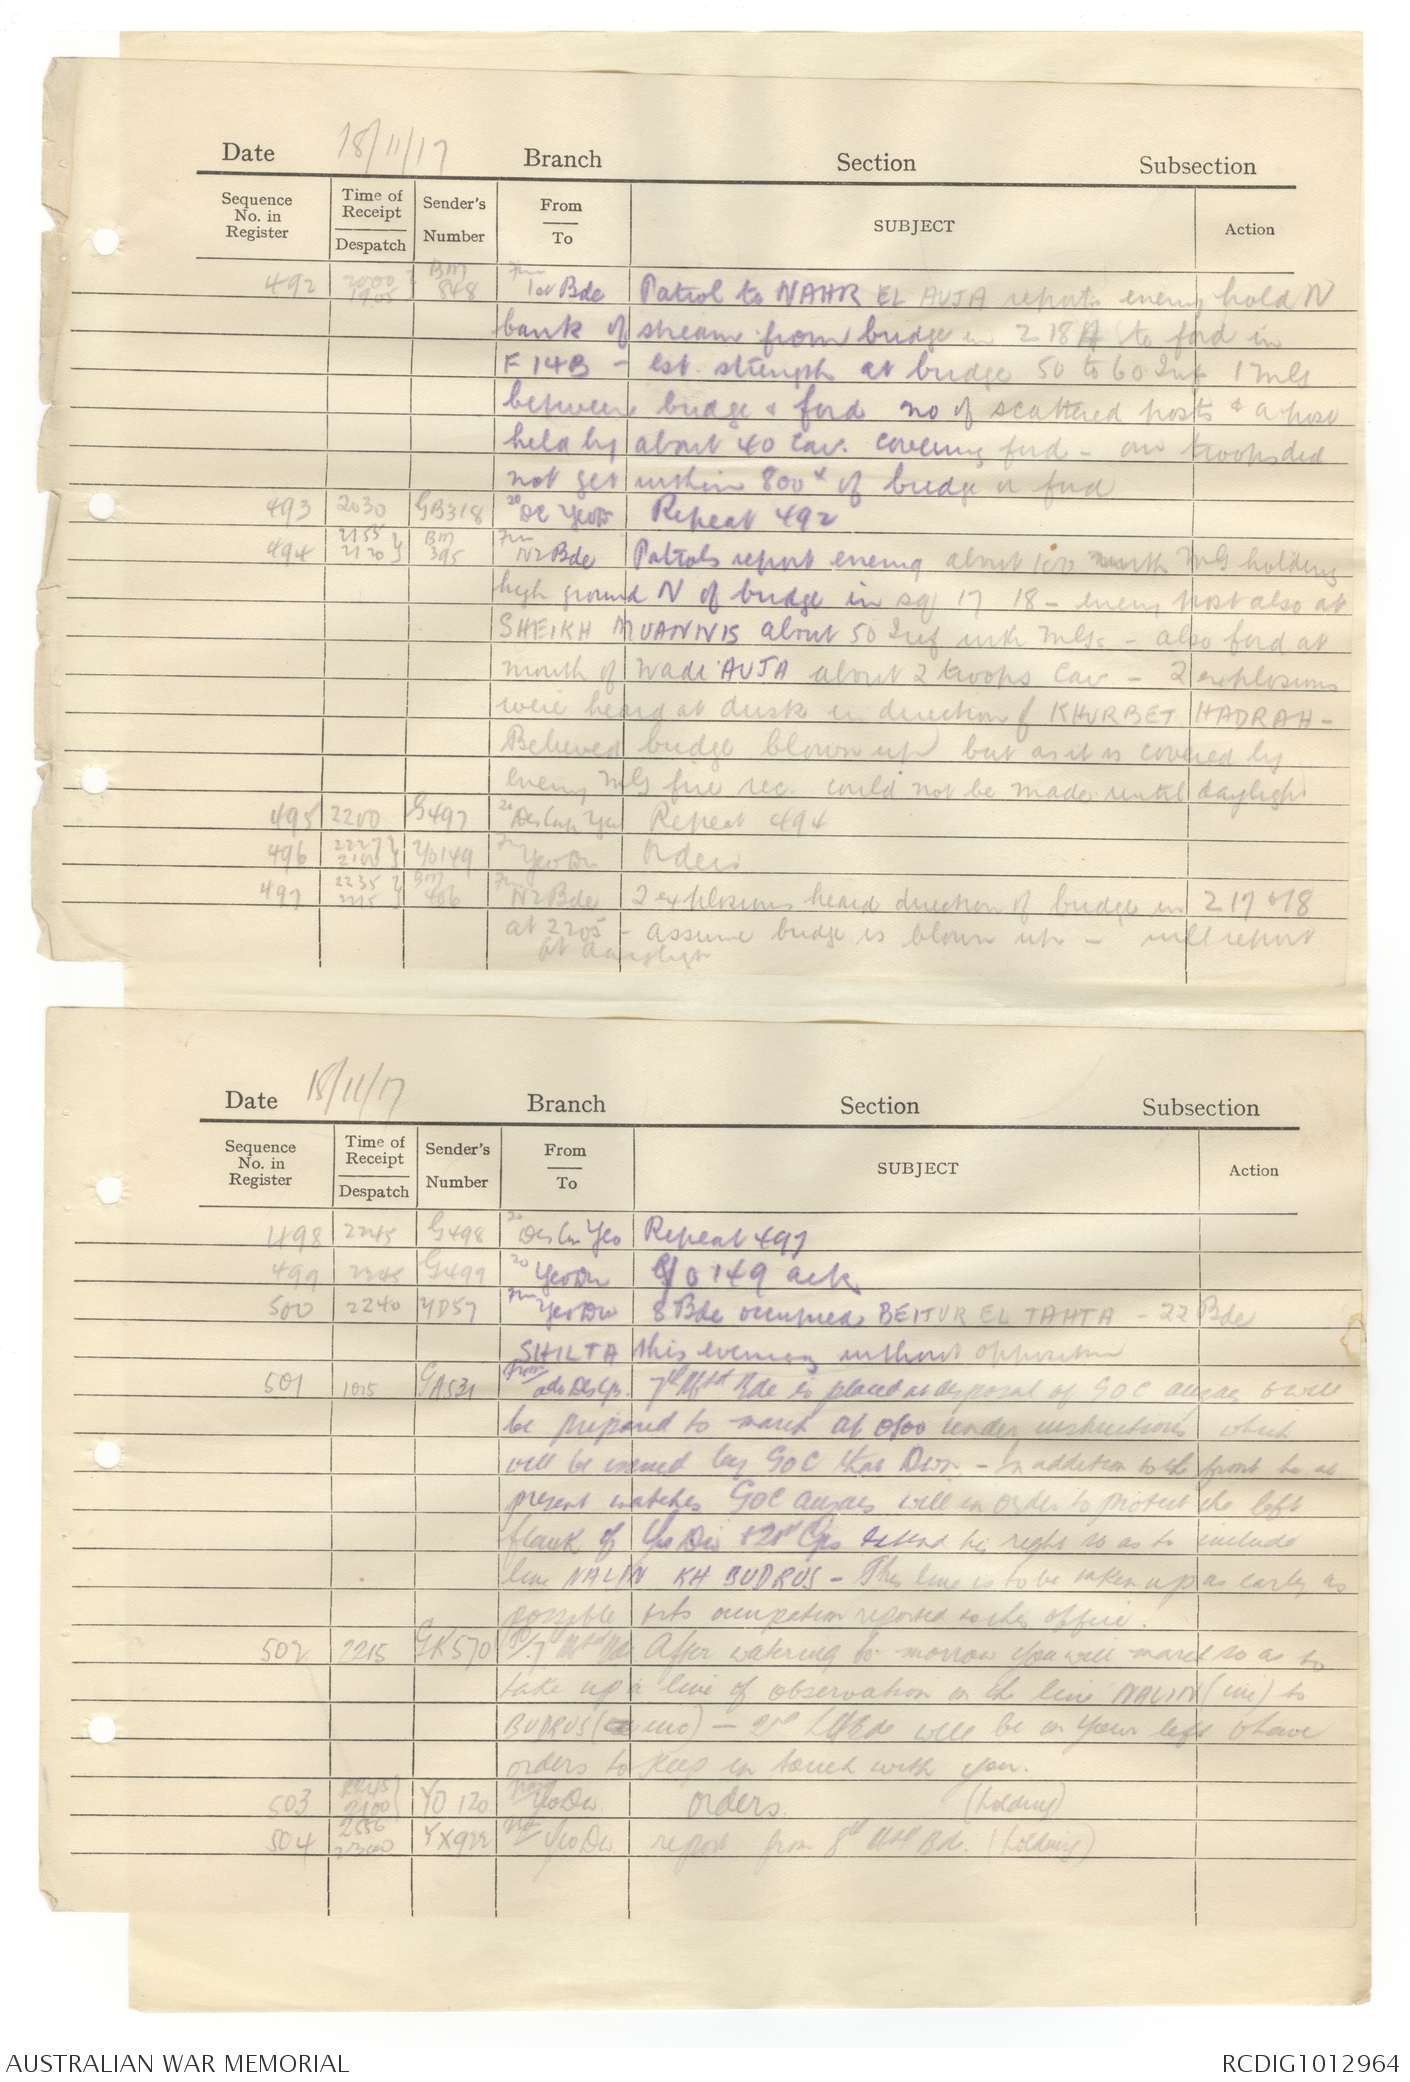 Date 18/11/17 Branch Section Subsection
Sequence No. in Register
Time of Receipt
Despatch
Sender's Number
From
To
SUBJECT
Action
492 2000 1905 BM 848 Fm 1st Bde Patrol to NAHR EL AUJA reports enemy hold N
bank of stream from bridge in Z 18 to ford in
F 14B - est. strength at bridge 50 to 60 Inf 1 MG
between bridge & ford no of scattered posts & a post
held by about 40 Cav. covering ford - our troops did
not get within 800x of bridge or ford
493 2030 GB318 to DC Yeo Repeat 492
494 2155 2120 BM 395 Fm NZ Bde Patrols report enemy about 100 with MG holding
high ground N of bridge in sq 17 18 - enemy post also at
SHEIKH MUANNIS about 50 Inf with MGs - also ford at
mouth of Wadi AUJA about 2 troops Cav - 2 explosions
were heard at dusk in direction of KHURBET HADRAH -
Believed bridge blown up but as it is covered by
enemy MG fire rec. could not be made until daylight
495 2200 G497 to Des Corps Yeo Repeat 494
496 2227 2100 YO149 Fm Yeo Div Orders
497 2235 2215 BM 406 Fm NZ Bde 2 explosions heard direction of bridge in Z 17 & 18
at 2205 - assume bridge is blown up - will report
at daylight
Date 18/11/17 Branch Section Subsection
Sequence No. in Register
Time of Receipt
Despatch
Sender's Number
From
To
SUBJECT
Action
498 2245 G498 to Des Cps Yeo Repeat 497
499 2245 G499 to Yeo Div YO 149 ack
500 2240 YD57 Fm Yeo Div 8 Bde occupied BEITUR EL TAHTA - 22 Bde
SHILTA this evening without opposition
501 1015 GA531 From adv Des Cps. 7th Mtd Bde is placed at disposal of GOC anzac & will
be prepared to march at 0500 under instructions which
will be issued by GOC that Divn. - In addition to the front he at
present watches GOC anzac will in order to protect the left
flank of Yeo Div & 21st Cps extend his right so as to include
line NALIN KH BUDRUS - This line is to be taken up as early as
possible & its occupation reported to this office.
502 2215 GK570 To 7 Mtd Bde After watering to-morrow you will march so as to
take up a line of observation on the line NALIN (inc) to
BUDRUS (inc) - 2nd LH Bde will be on your left & have
orders to keep in touch with you.
503 2245 2100 YO 120 Yeo Div. orders. (holding)
504 YX922 Yeo Div report from 8th Mtd Bde. (holding)
AUSTRALIAN WAR MEMORIAL RCDIG1012964